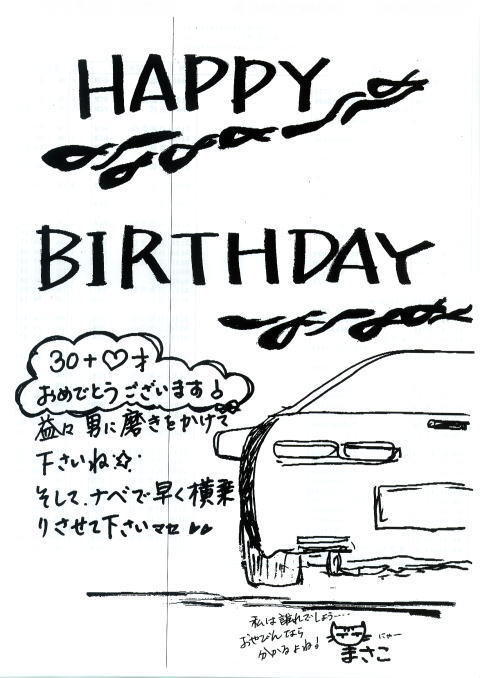 HAPPY
BIRTHDAY
30+♡才
おめでとうございます!
益に男に磨きをかけて
下さいね☆
そして、ナベで早く横乗
りさせて下さいマセ
私は誰れでしょう……
おやびんなら
分かるよね!
にゃー
まさこ